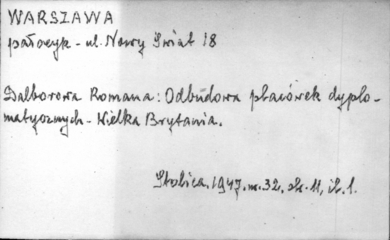 WARSZAWA
pałacyk - ul. Nowy Świat 18
Dalborowa Romana: Odbudowa placówek dyplo-
matycznych - Wielka Brytania.
Stolica. 1947. nr. 32, str. 11, il. 1.